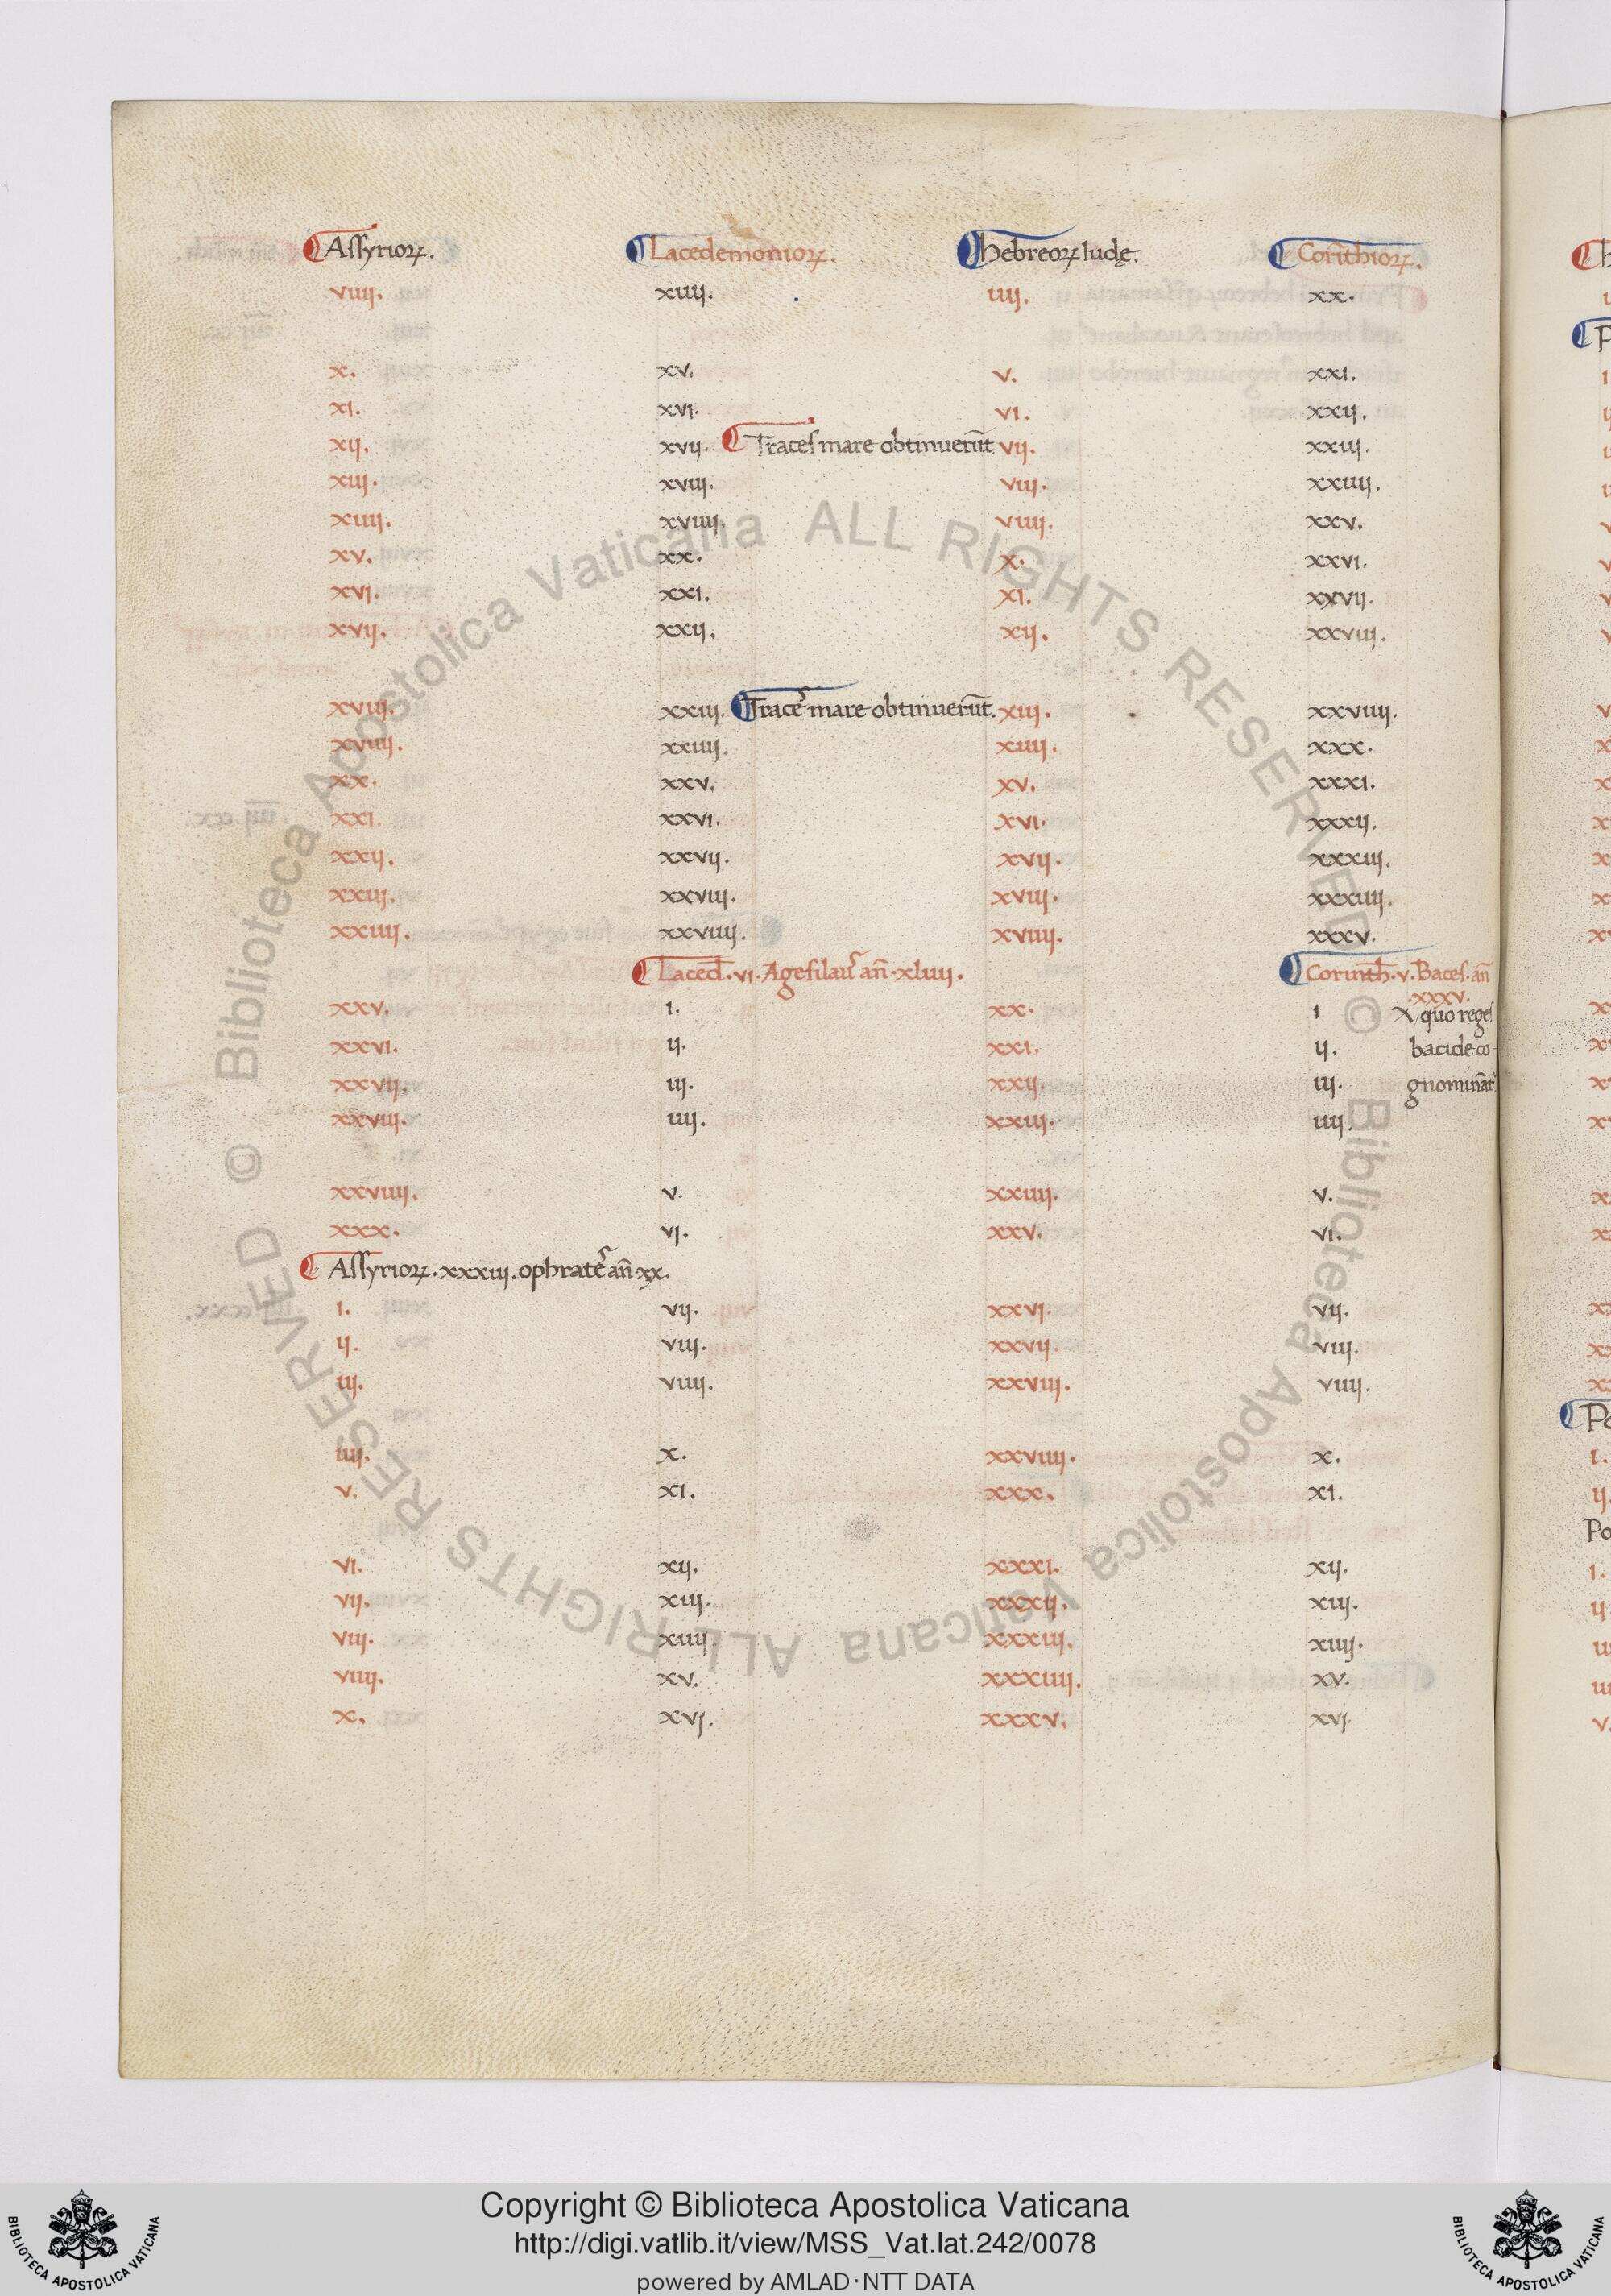 Assyrioꝝ. Lacedemonioꝝ. hebreoꝝ Iudę. Corĩthioꝝ.
viiij. xiiij. iiij. xx.
x. xv. v. xxi.
xi. xvi. vi. xxij.
xij. xvij. Traces mare obtinuerūt vij. xxiij.
xiij. xviij. viij. xxiiij.
xiiij. xviiij. viiij. xxv.
xv. xx. x. xxvi.
xvi. xxi. xi. xxvij.
xvij. xxij. xij. xxviij.
xviij. xxiij. Traces mare obtinuerūt. xiij. xxviiij.
xviiij. xxiiij. xiiij. xxx.
xx. xxv. xv. xxxi.
xxi. xxvi. xvi. xxxij.
xxij. xxvij. xvij. xxxiij.
xxiij. xxviij. xviij. xxxiiij.
xxiiij. xxviiij. xviiij. xxxv.
Laced. vi. Agesilaus añ. xliiij. Corinth. v. Baces. añ
.xxxv.
xxv. i. xx. i quo reges
xxvi. ij. xxi. ij. bacide co-
xxvij. iij. xxij. iij. gnominãt
xxviij. iiij. xxiij. iiij.
xxviiij. v. xxiiij. v.
xxx. vj. xxv. vi.
Assyrioꝝ. xxxiij. ophrates añ. xx.
i. vij. xxvi. vij.
ij. viij. xxvij. viij.
iij. viiij. xxviij. viiij.
iiij. x. xxviiij. x.
v. xi. xxx. xi.
vi. xij. xxxi. xij.
vij. xiij. xxxij. xiij.
viij. xiiij. xxxiij. xiiij.
viiij. xv. xxxiiij. xv.
x. xvj. xxxv. xvj.
© Biblioteca Apostolica Vaticana ALL RIGHTS RESERVED
© Biblioteca Apostolica Vaticana ALL RIGHTS RESERVED
Copyright © Biblioteca Apostolica Vaticana
http://digi.vatlib.it/view/MSS_Vat.lat.242/0078
powered by AMLAD·NTT DATA
BIBLIOTECA APOSTOLICA VATICANA
BIBLIOTECA APOSTOLICA VATICANA